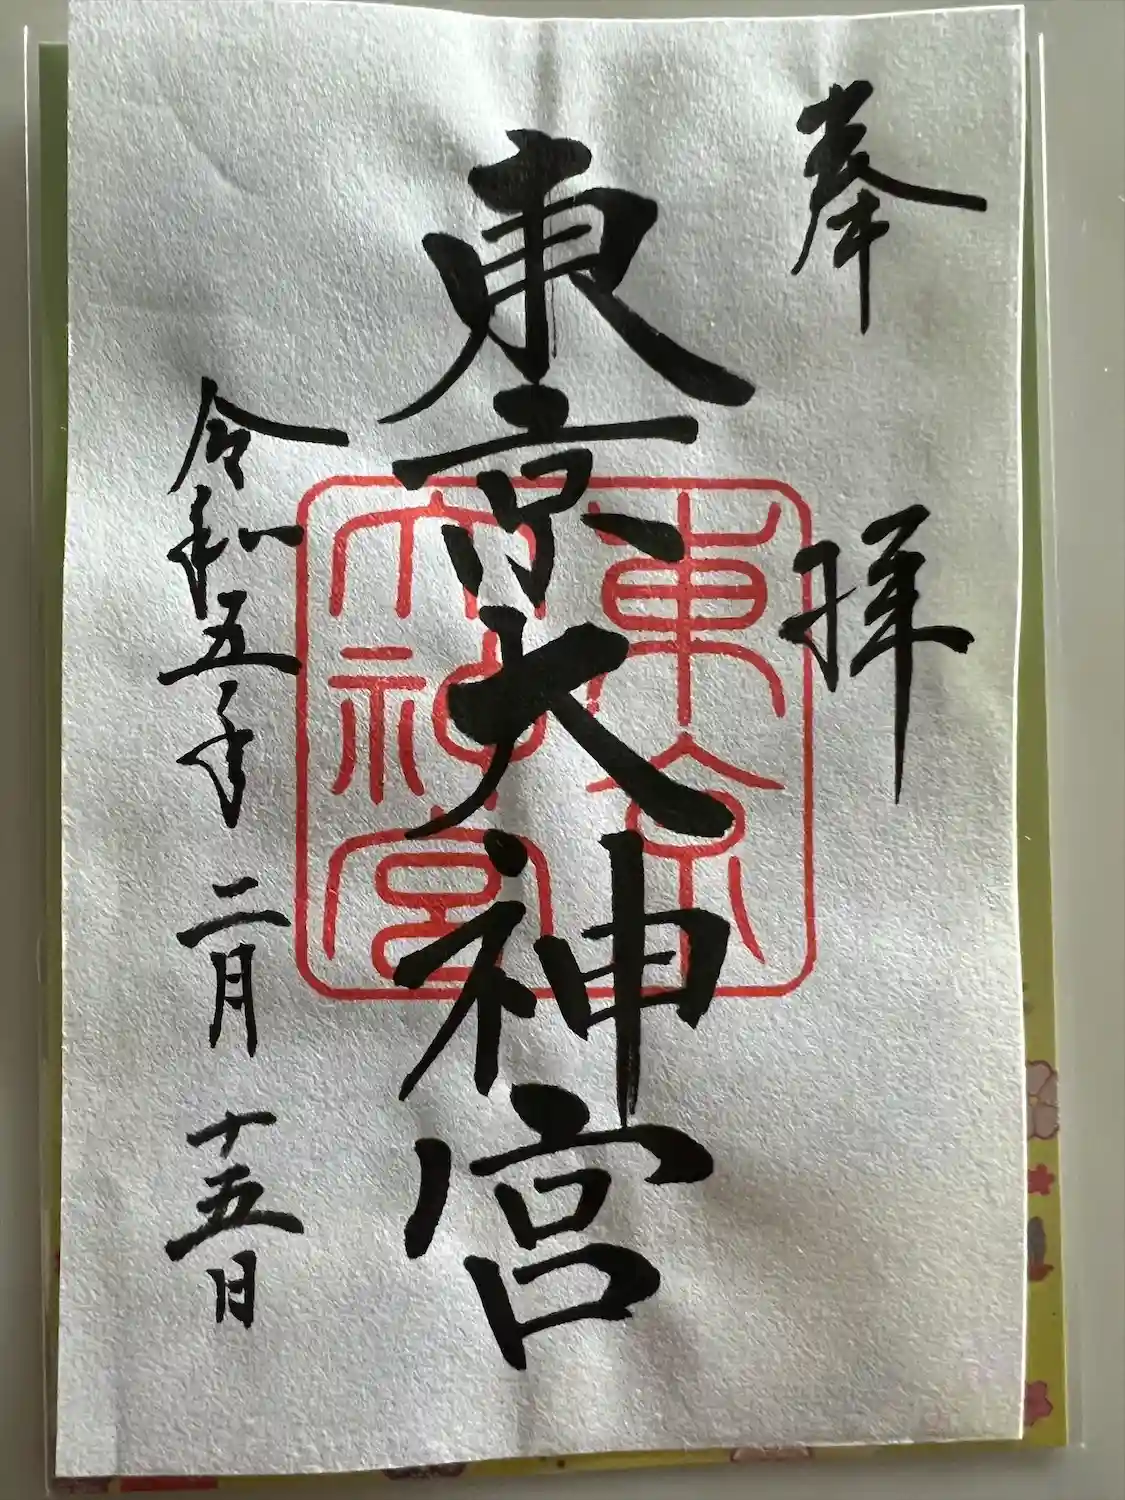 奉拝
東京大神宮
東京
大神宮
令和五年二月十五日